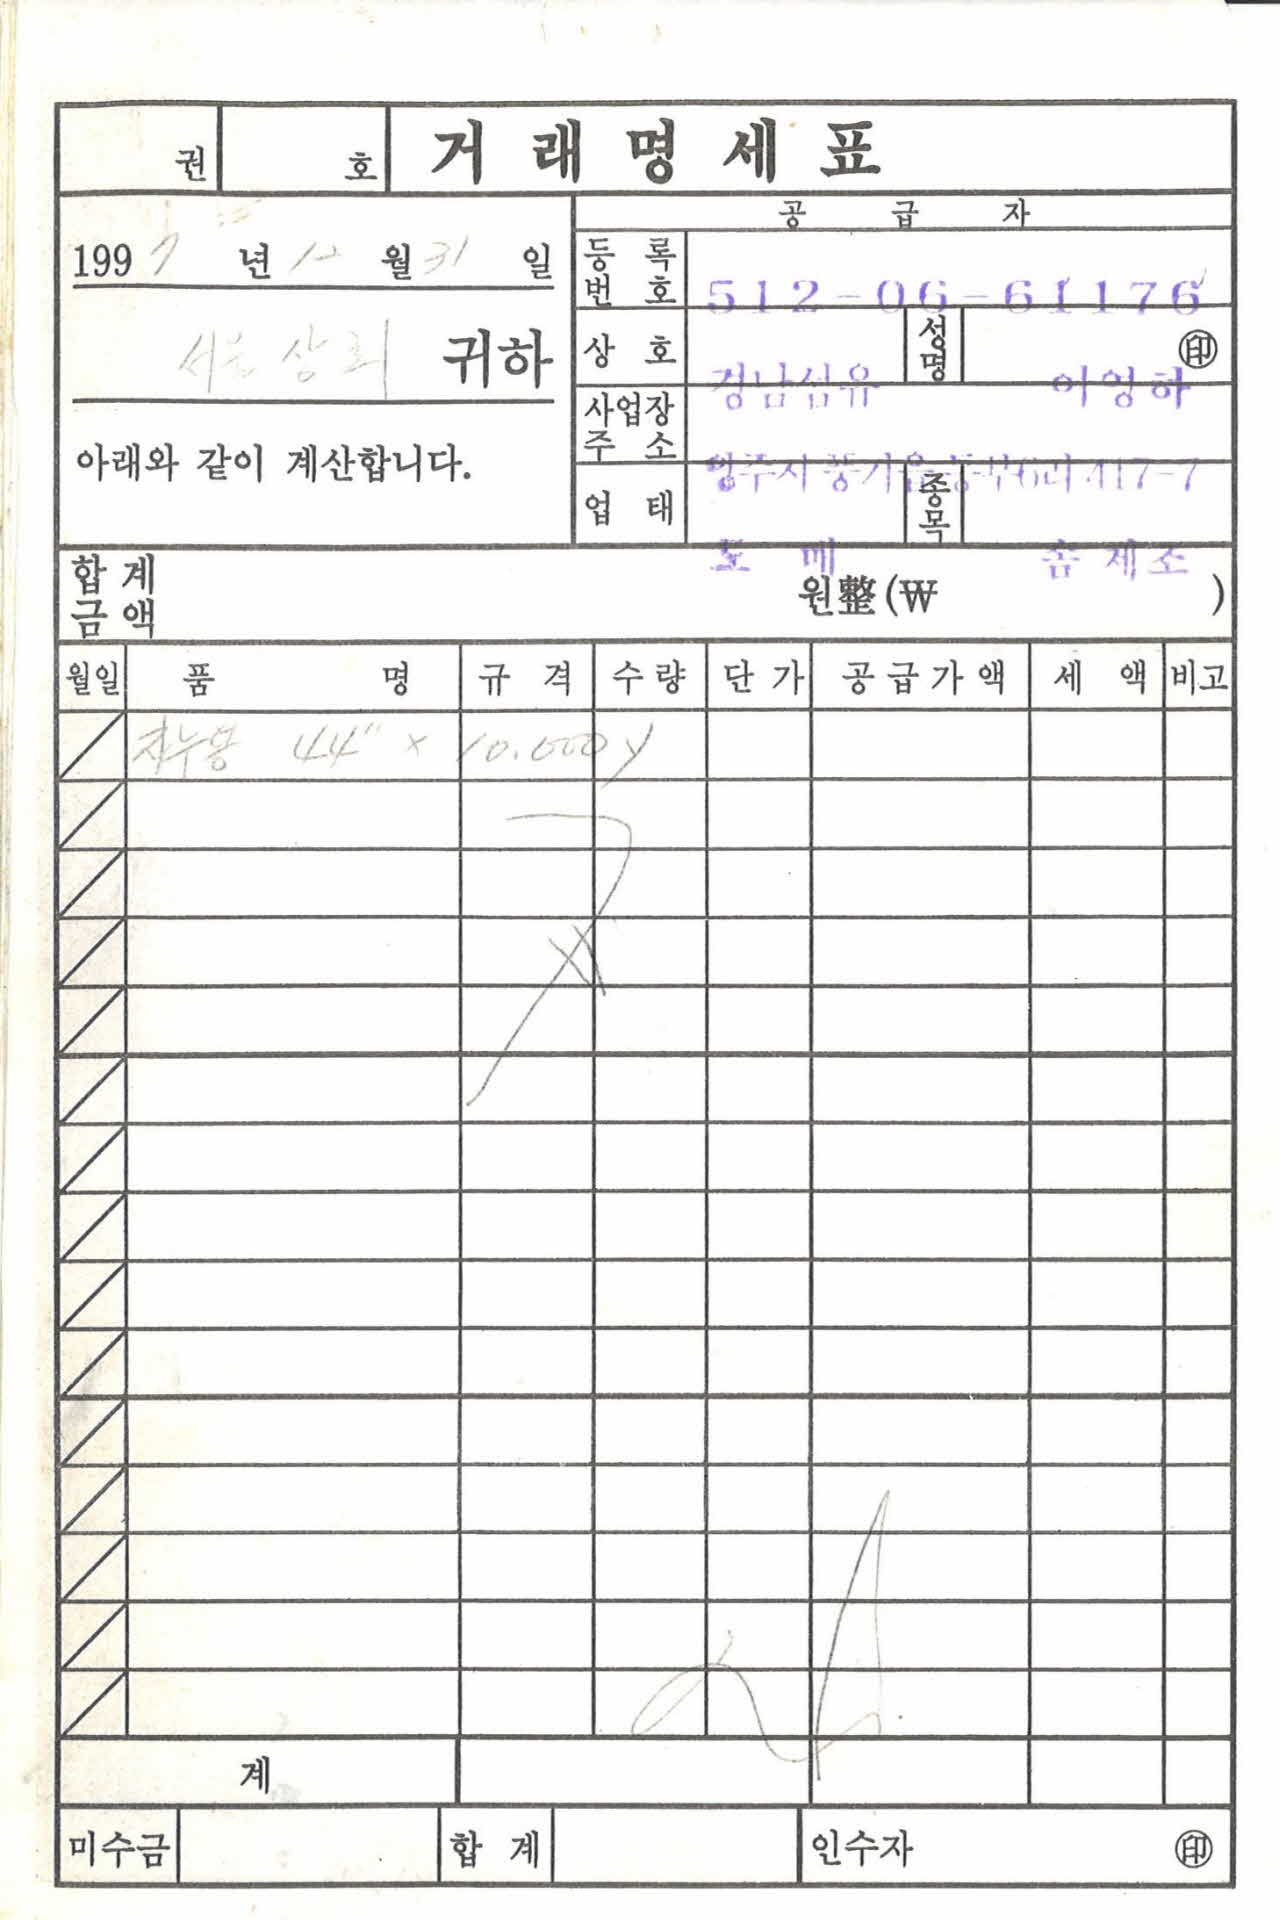 권 호 거래명세표
1997년 12월 31일
서울상회 귀하
아래와 같이 계산합니다.
공급자
등록번호 512-06-61176
상호 경남섬유 성명 이영하 ㊞
사업장주소 영주시 풍기읍 동부6리 417-7
업태 도매 종목
합계금액 원整(₩ )
월일 품명 규격 수량 단가 공급가액 세액 비고
자누용 44" x 10.000y
계
미수금 합계 인수자 ㊞